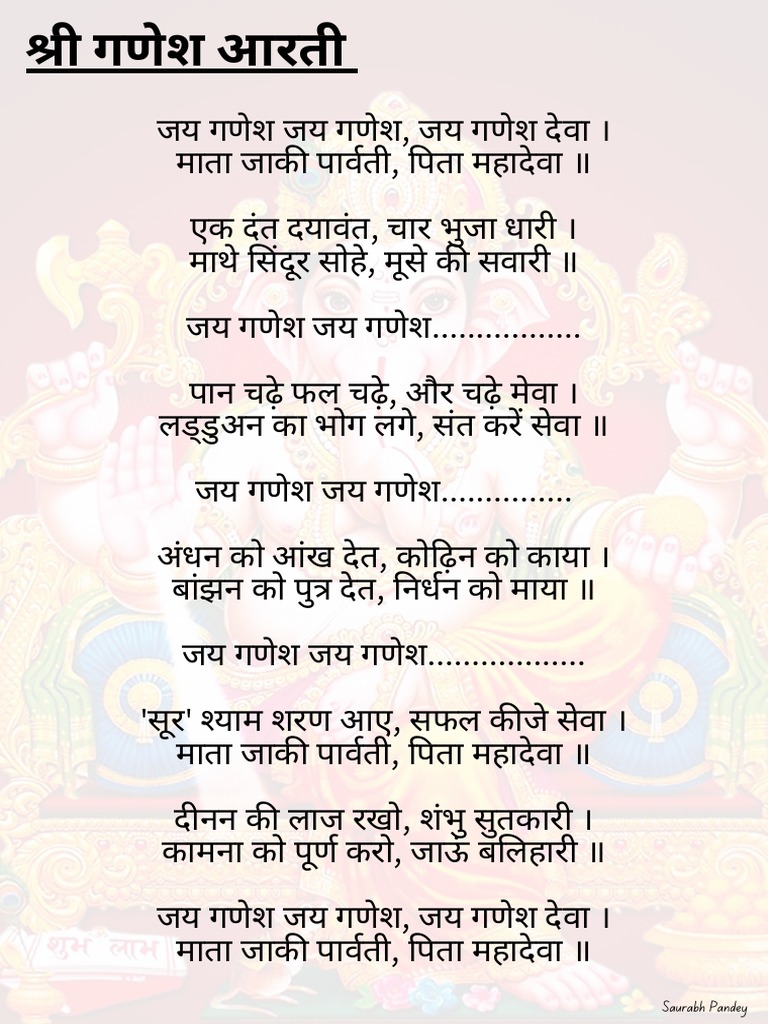 श्री गणेश आरती
जय गणेश जय गणेश, जय गणेश देवा ।
माता जाकी पार्वती, पिता महादेवा ॥
एक दंत दयावंत, चार भुजा धारी ।
माथे सिंदूर सोहे, मूसे की सवारी ॥
जय गणेश जय गणेश.................
पान चढ़े फल चढ़े, और चढ़े मेवा ।
लड्डुअन का भोग लगे, संत करें सेवा ॥
जय गणेश जय गणेश...............
अंधन को आंख देत, कोढ़िन को काया ।
बांझन को पुत्र देत, निर्धन को माया ॥
जय गणेश जय गणेश..................
'सूर' श्याम शरण आए, सफल कीजे सेवा ।
माता जाकी पार्वती, पिता महादेवा ॥
दीनन की लाज रखो, शंभु सुतकारी ।
कामना को पूर्ण करो, जाऊं बलिहारी ॥
जय गणेश जय गणेश, जय गणेश देवा ।
माता जाकी पार्वती, पिता महादेवा ॥
शुभ लाभ
Saurabh Pandey